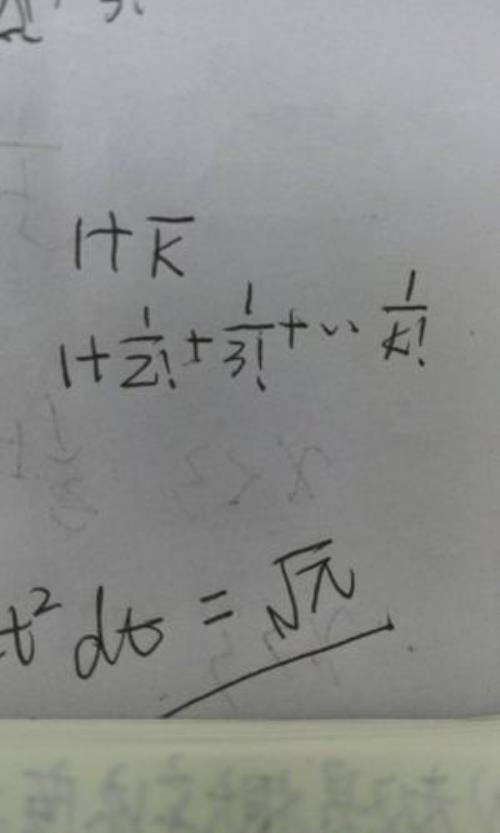 1+ \overline{K}
1+\frac{1}{2!}+\frac{1}{3!}+\cdots \frac{1}{k!}
t^2 dt = \sqrt{\pi}